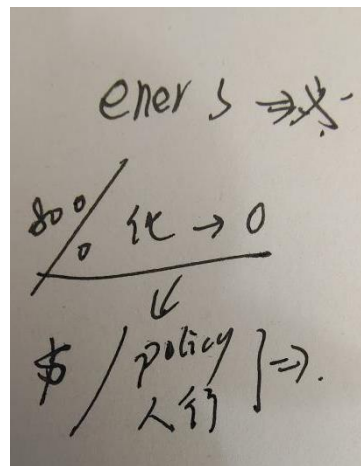 ener s ⇒
80% 化 → 0
$ / policy
人行 ] ⇒